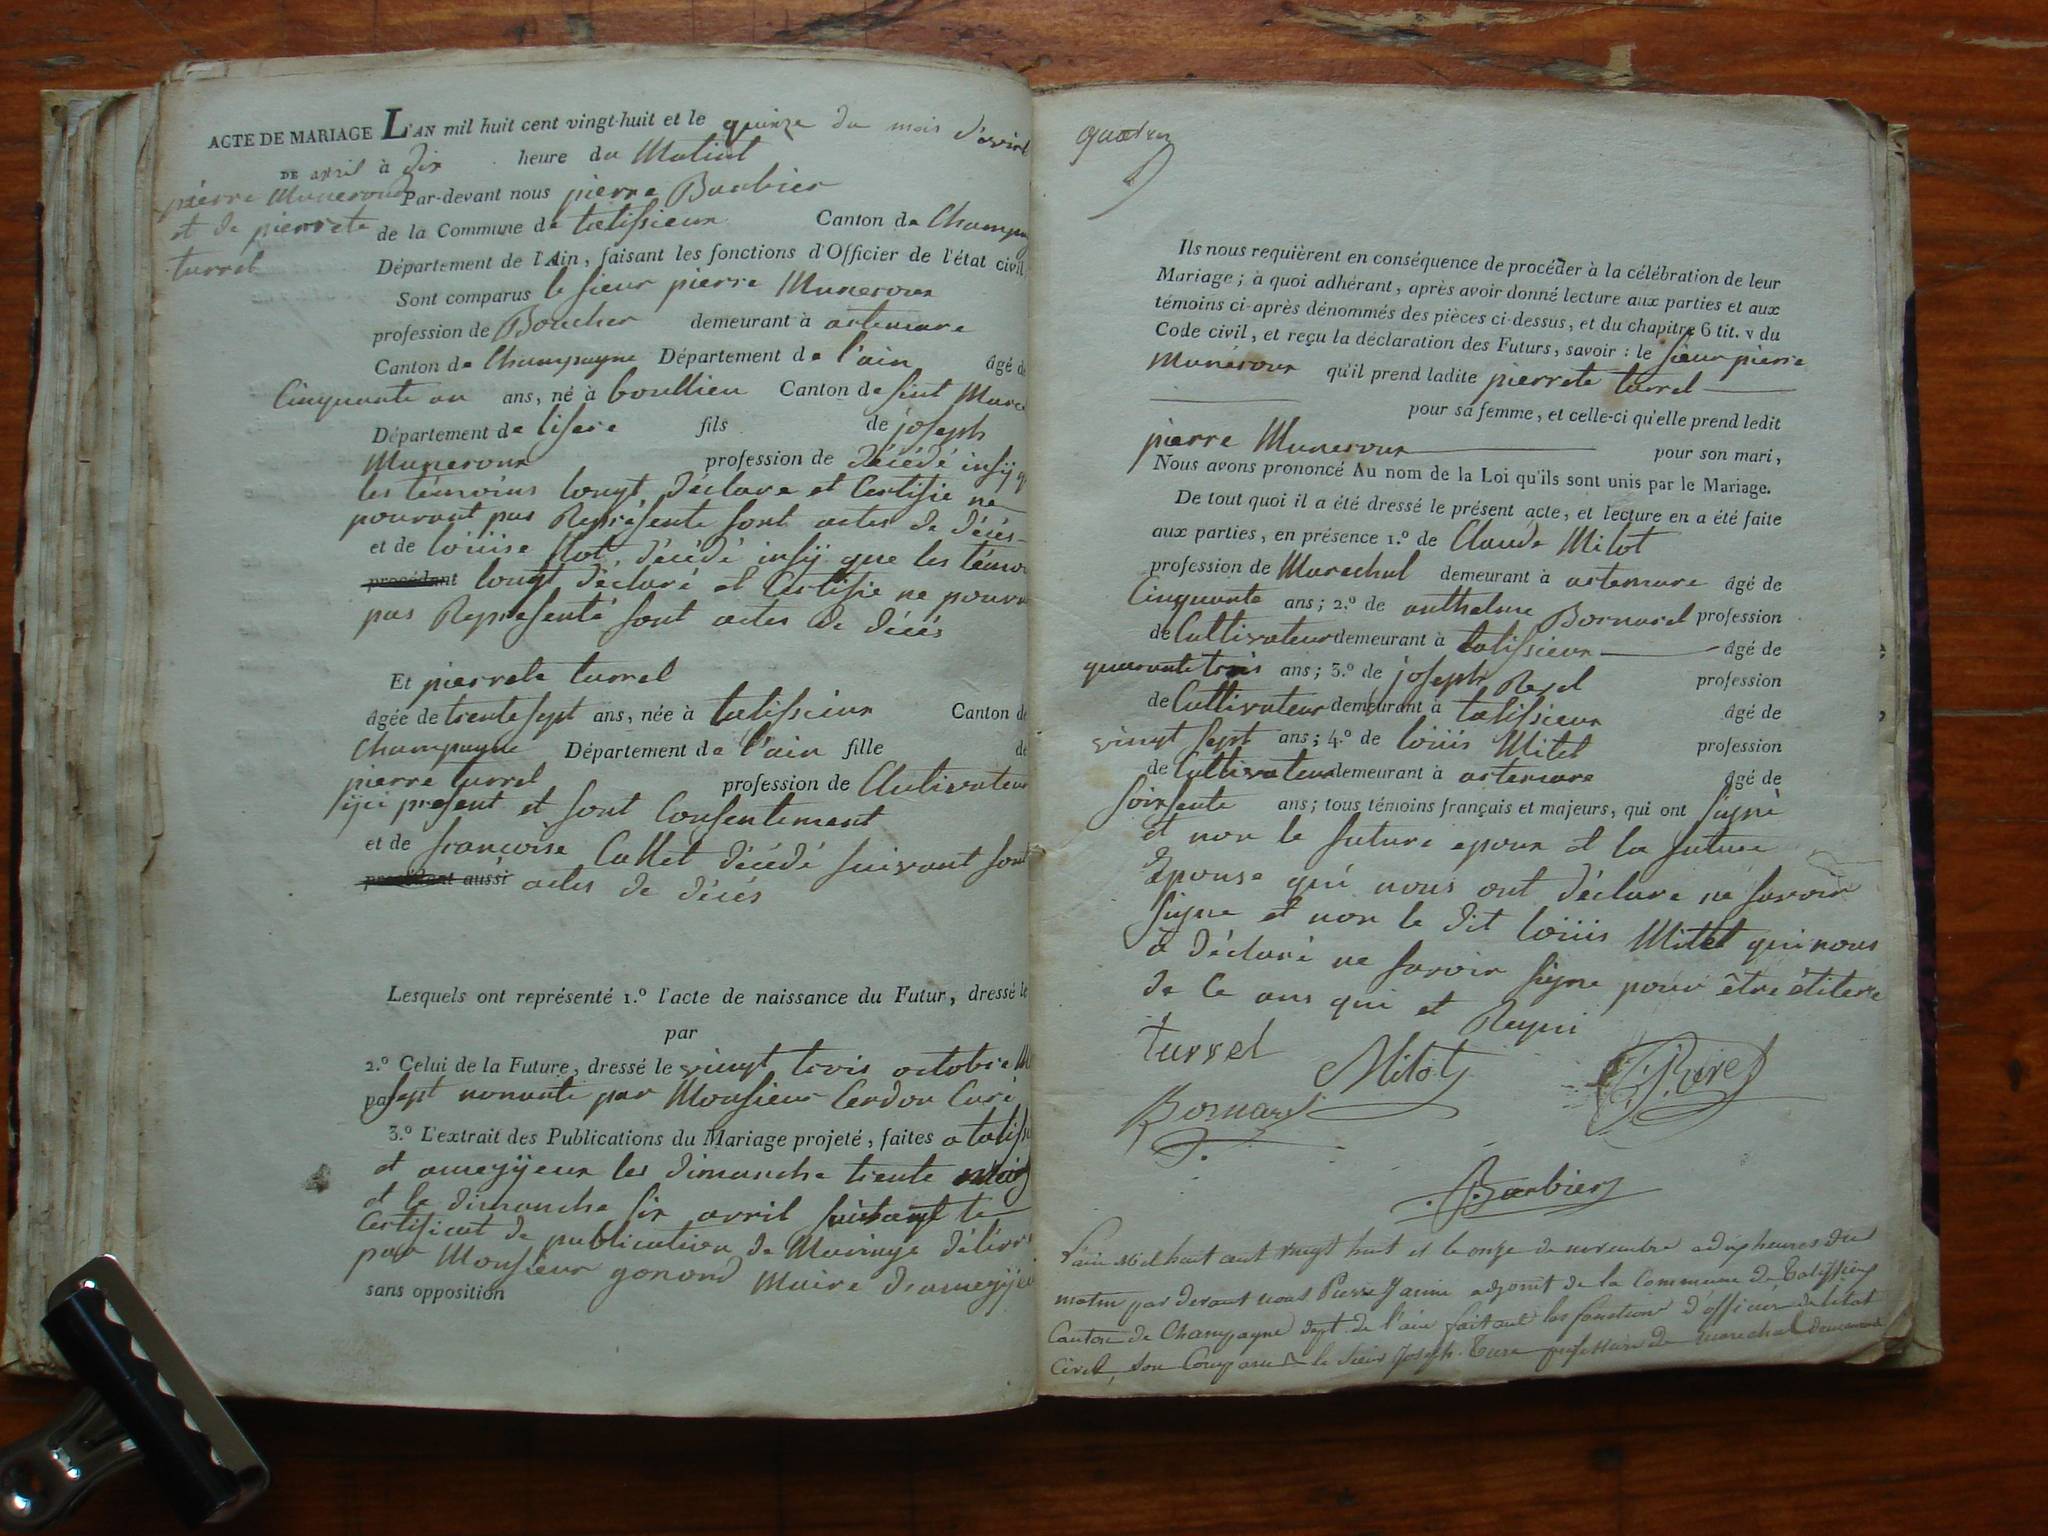 ACTE DE MARIAGE L'AN mil huit cent vingt-huit et le quinze du mois d'avril
DE avril à dix heure du Matint
pierre Muneroux
et de pierrete
turrel
Par-devant nous pierre Barbier
de la Commune de talissieux Canton de Champag
Département de l'Ain, faisant les fonctions d'Officier de l'état civil
Sont comparus le sieur pierre Muneroux
profession de Boucher demeurant à artemare
Canton de Champagne Département de l'ain âgé de
Cinquante un ans, né à boullieu Canton de sint Marce
Département de lisere fils de joseph
Muneroux profession de décédé insÿ q
les témoins longt déclare et Certifie ne
pouvant pas Représente sont actes de décés
et de loüise décédé insÿ que les témoi
procédant longt déclaré et Certifie ne pouva
pas Représenté sont actes de décés
Et pierrete turrel
âgée de trente sept ans, née à talissieux Canton de
Champagne Département de l'ain fille de
pierre turrel profession de Cultivateur
ÿci present et sont Consentement
et de francoise Callet décédé suivant sont
procédant aussi actes de décés
Lesquels ont représenté 1.º l'acte de naissance du Futur, dressé le
par
2.º Celui de la Future, dressé le vingt trois octobre M
par sept nonante par Monsieur Cerdon Curé
3.º L'extrait des Publications du Mariage projeté, faites a taliss
et ameÿzieux les dimanche trente mars
et le dimanche six avril suivant le
Certificat de publication de Mariage délivr
par Monsieur gonond Maire d'ameÿzie
sans opposition
Ils nous requièrent en conséquence de procéder à la célébration de leur
Mariage; à quoi adhérant, après avoir donné lecture aux parties et aux
témoins ci-après dénommés des pièces ci-dessus, et du chapitre 6 tit. v du
Code civil, et reçu la déclaration des Futurs, savoir: le sieur pierre
Muneroux qu'il prend ladite pierrete turrel
pour sa femme, et celle-ci qu'elle prend ledit
pierre Muneroux pour son mari,
Nous avons prononcé Au nom de la Loi qu'ils sont unis par le Mariage.
De tout quoi il a été dressé le présent acte, et lecture en a été faite
aux parties, en présence 1.º de Claude Milot
profession de Marechal demeurant à artemare âgé de
Cinquante ans; 2.º de anthelme Bornarel profession
de Cultivateur demeurant à talissieux âgé de
quarante trois ans; 3.º de joseph profession
de Cultivateur demeurant à talissieux âgé de
vingt sept ans; 4.º de loüis Mitel profession
de Cultivateur demeurant à artemare âgé de
soixsente ans; tous témoins français et majeurs, qui ont signé
et non le future epoux et la future
Epouse qui nous ont déclare ne savoir
signe et non le dit loüis Mitel qui nous
a déclaré ne savoir signe pour être étitere
de Ce ans qui et Requi
turrel Milot
Bornarel
Barbier
L'ain Mil huit cent vingt huit et le onze de novembre a dix heures du
matin par devant nous Pierre Janin adjoint de la Commune de Talissieux
Canton de Champagne dept. de l'ain faisant les fonctions d'officier de letat
Civil, son Comparu le sieur Joseph profession de marechal demeurant